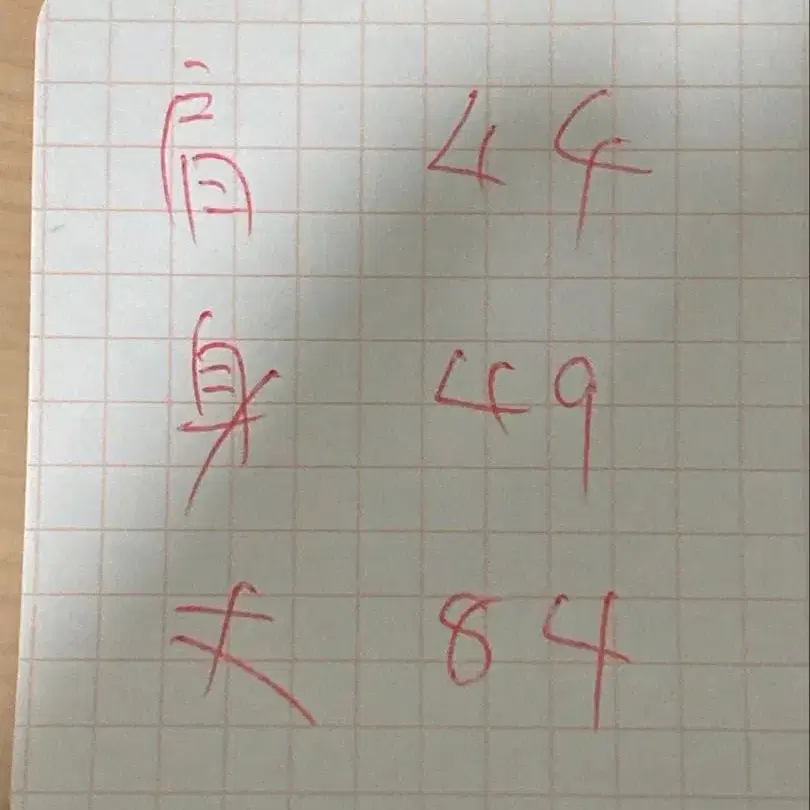 肩 44
身 49
丈 84